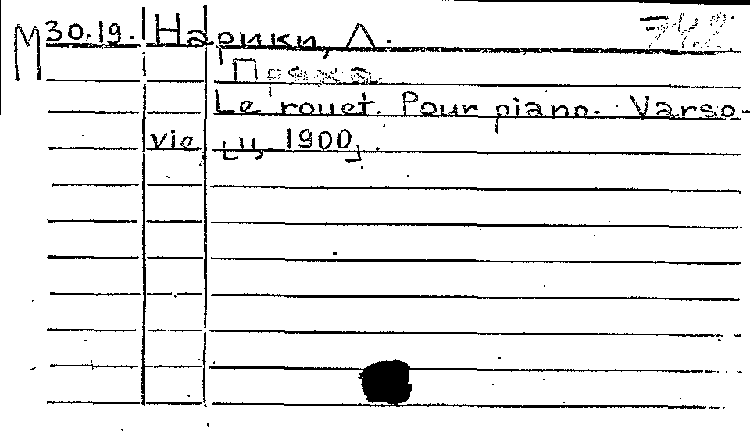 М 30.19. Нарики, Л. 742
Пряха.
Le rouet. Pour piano. Varso-
vie, [ц. 1900].